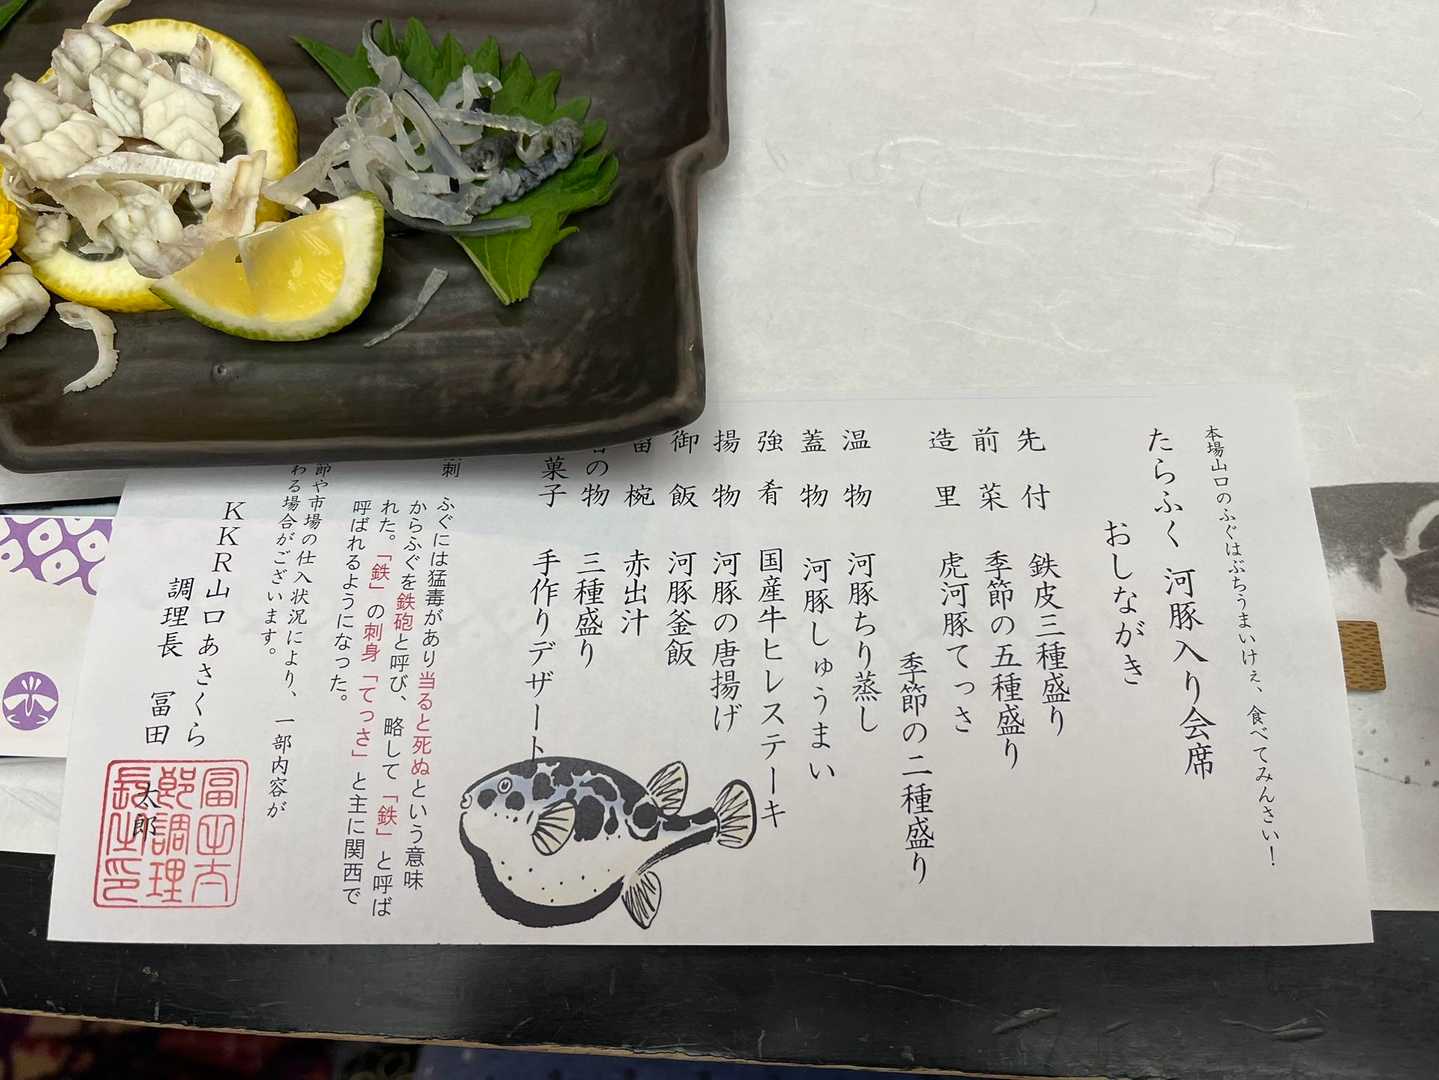 本場山口のふぐはぶちうまいけぇ、食べてみんさい！
たらふく 河豚入り会席
おしながき
先付 鉄皮三種盛り
前菜 季節の五種盛り
造里 虎河豚てっさ
季節の二種盛り
温物 河豚ちり蒸し
蓋物 河豚しゅうまい
強肴 国産牛ヒレステーキ
揚物 河豚の唐揚げ
御飯 河豚釜飯
留椀 赤出汁
の物 三種盛り
菓子 手作りデザート
刺 ふぐには猛毒があり当ると死ぬという意味
からふぐを鉄砲と呼び、略して「鉄」と呼ば
れた。「鉄」の刺身「てっさ」と主に関西で
呼ばれるようになった。
節や市場の仕入状況により、一部内容が
わる場合がございます。
KKR山口あさくら
調理長 冨田 太郎
冨田太
郎調理
長之印